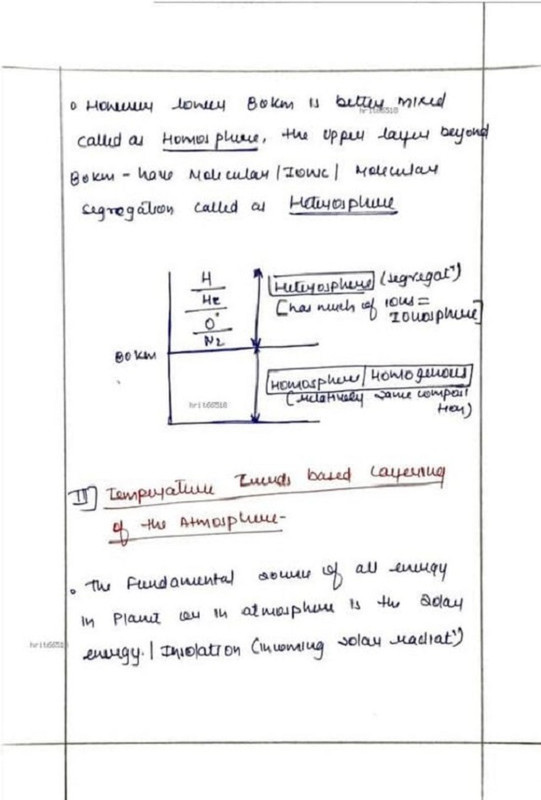 • However lower 80km is better mixed
hrit66518
called as Homosphere, the upper layer beyond
80km - have Molecular / Ionic / Molecular
segregation called as Heterosphere
H
He
O
N2
Heterosphere (segregatⁿ)
[has much of ions =
Ionosphere]
80km
Homosphere / Homogenous
(relatively same composi
tion)
hrit66518
II] Temperature Trends based Layering
of the Atmosphere-
• The Fundamental source of all energy
in Planet or in atmosphere is the Solar
energy. / Insolation (incoming solar radiatⁿ)
hrit66518